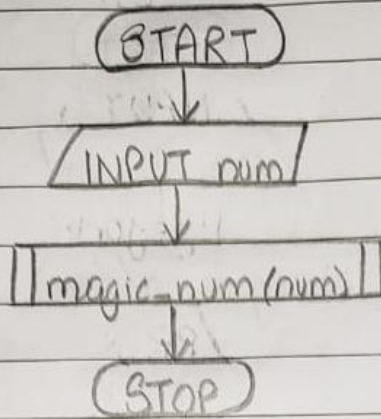 START
INPUT num
magic_num(num)
STOP